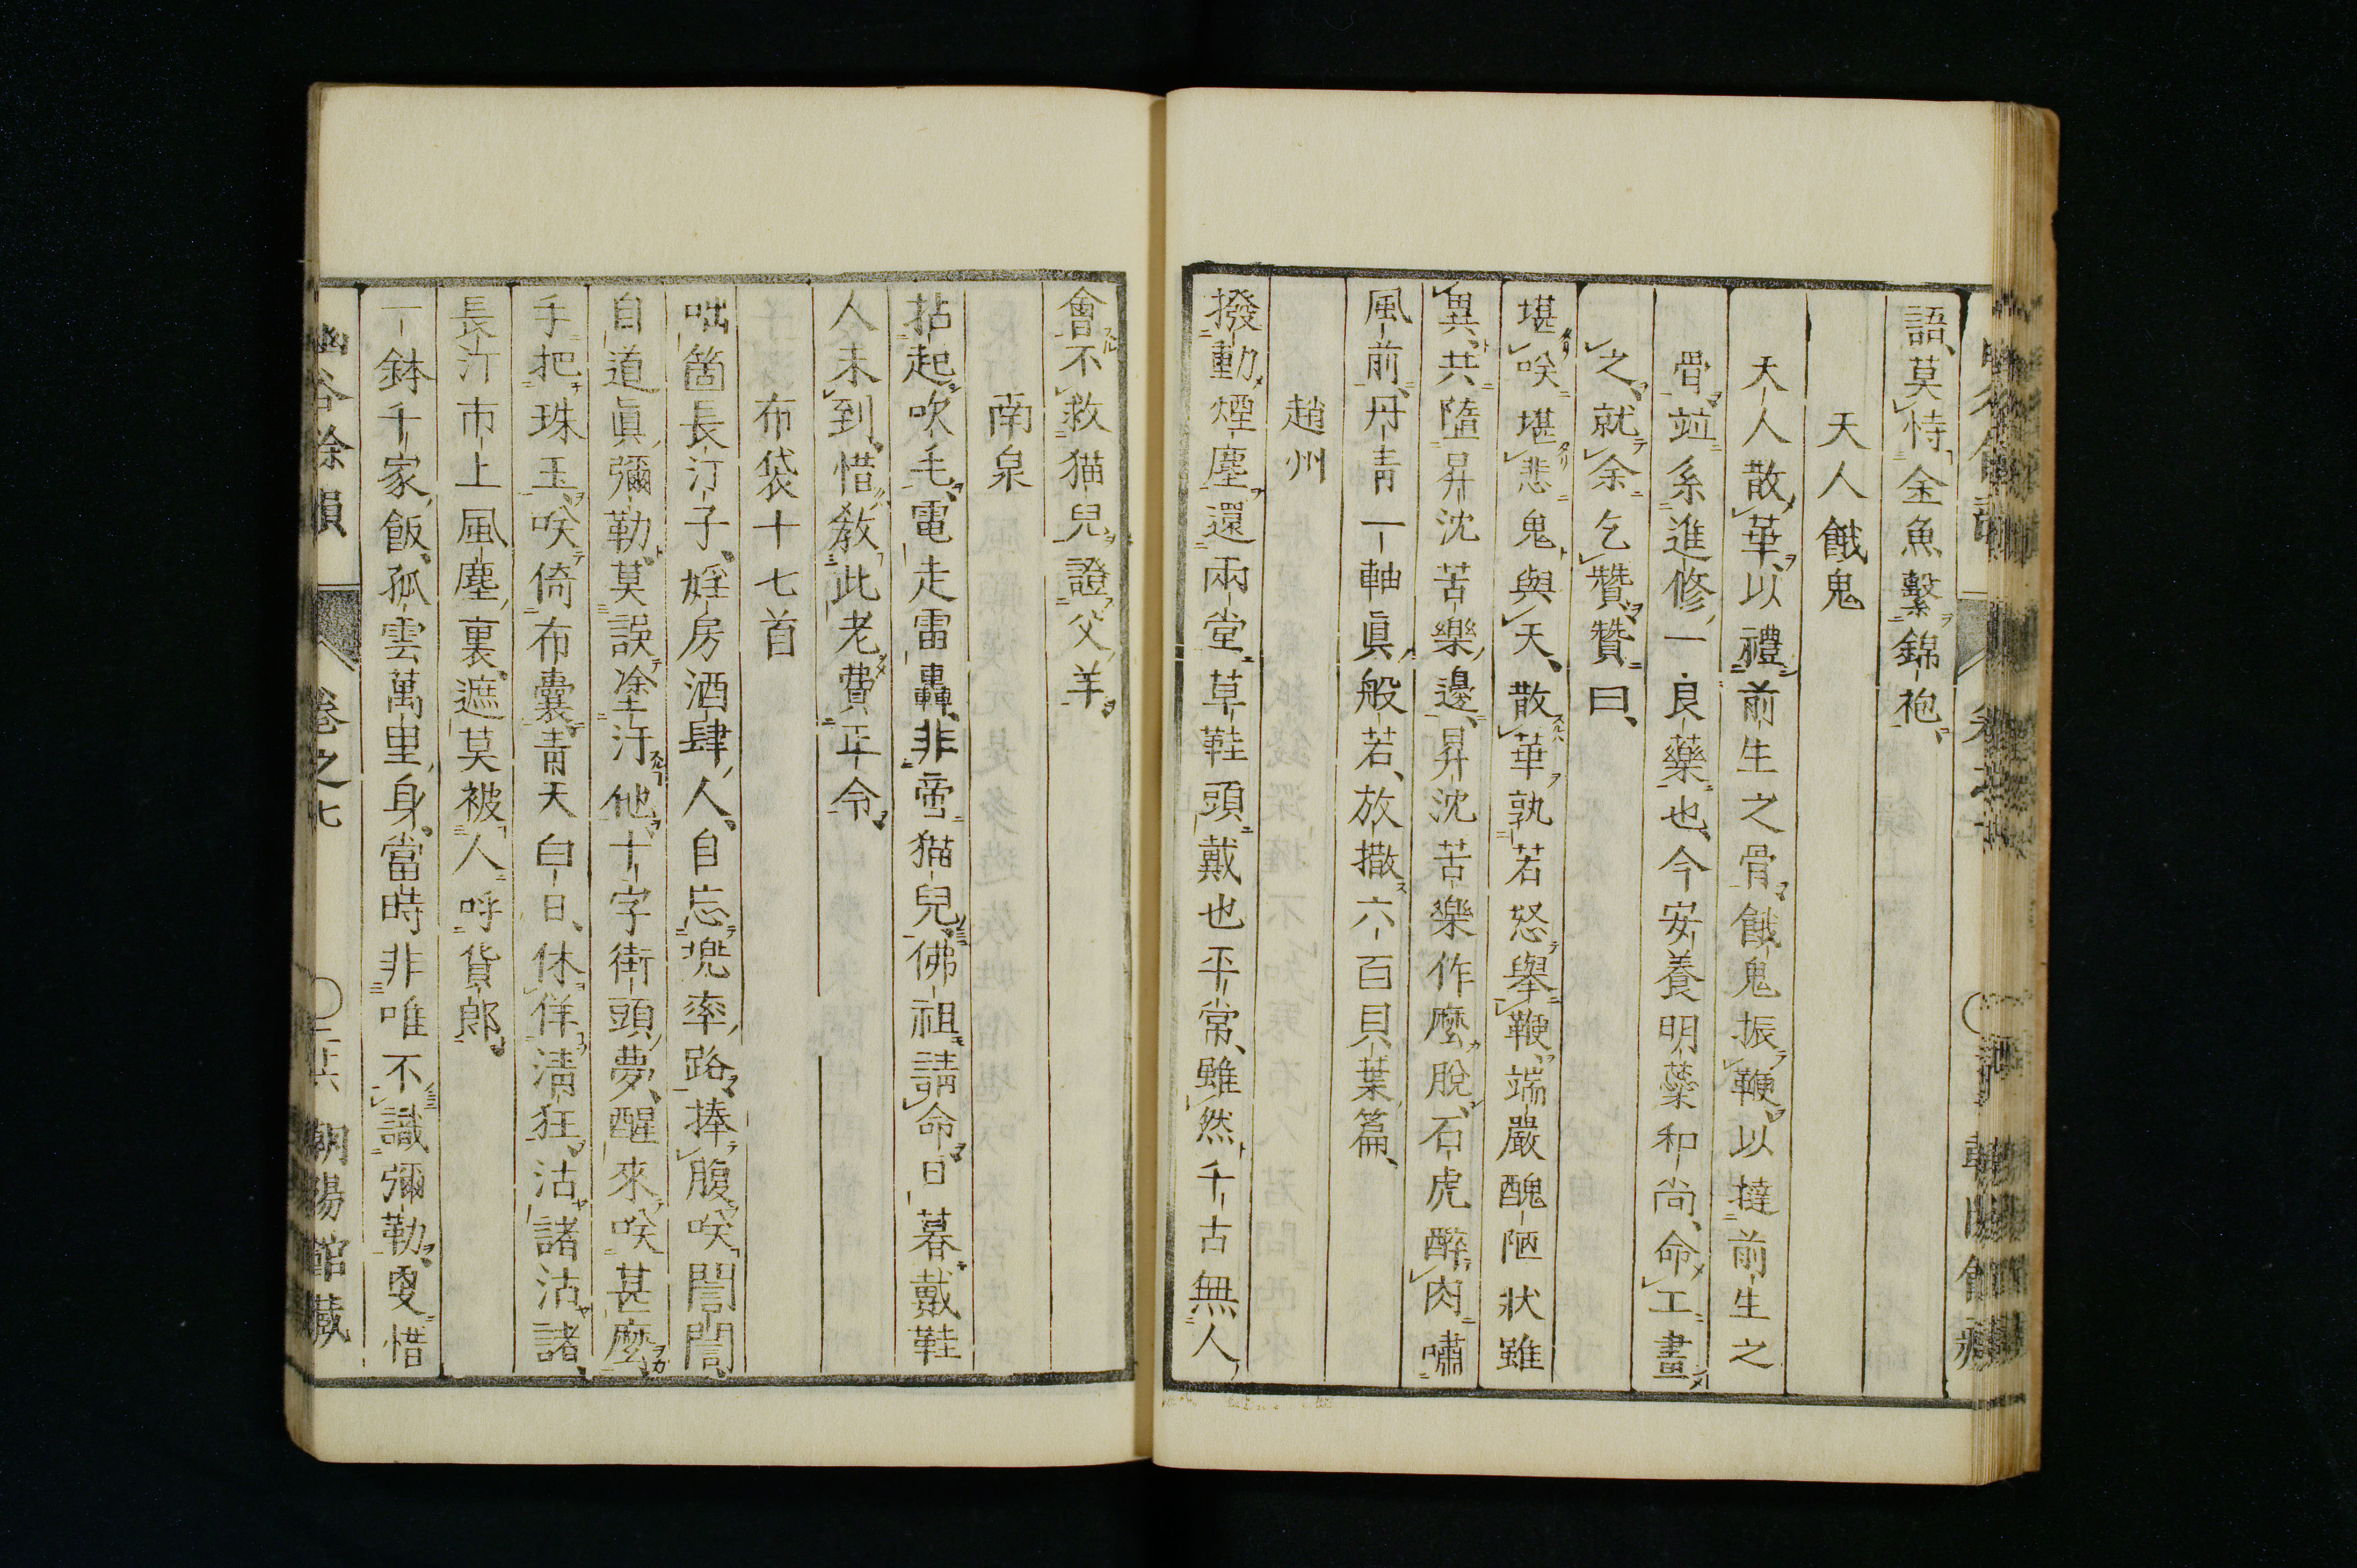 語莫恃金魚繫錦袍
天人餓鬼
天人散華以禮前生之骨餓鬼振鞭以撻前生之
骨竝系進修一良藥也今安養明蘂和尚命工畫
之就余乞贊贊曰
堪咲堪悲鬼與天散華孰若怒擧鞭端嚴醜陋狀雖
異共墮昇沈苦樂邊昇沈苦樂作麼脫石虎醉肉嘯
風前丹青一軸眞般若放撒六百貝葉篇
趙州
撥動煙塵還兩堂草鞋頭戴也平常雖然千古無人
會不救猫兒證父羊
南泉
拈起吹毛電走雷轟非啻猫兒佛祖請命日暮戴鞋
人未到惜教此老費正令
布袋十七首
咄箇長汀子婬房酒肆人自忘兜率路捧腹咲誾誾
自道眞彌勒莫誤塗汙他十字街頭夢醒來咲甚麼
手把珠玉咲倚布囊青天白日休佯淸狂沽諸沽諸
長汀市上風塵裏遮莫被人呼貨郎
一鉢千家飯孤雲萬里身當時非唯不識彌勒更惜
幽谷餘韻 卷之七 朝陽館藏